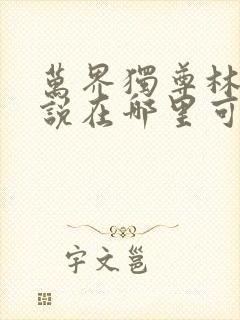 萬界獨尊林
說在哪里可
宇文邕